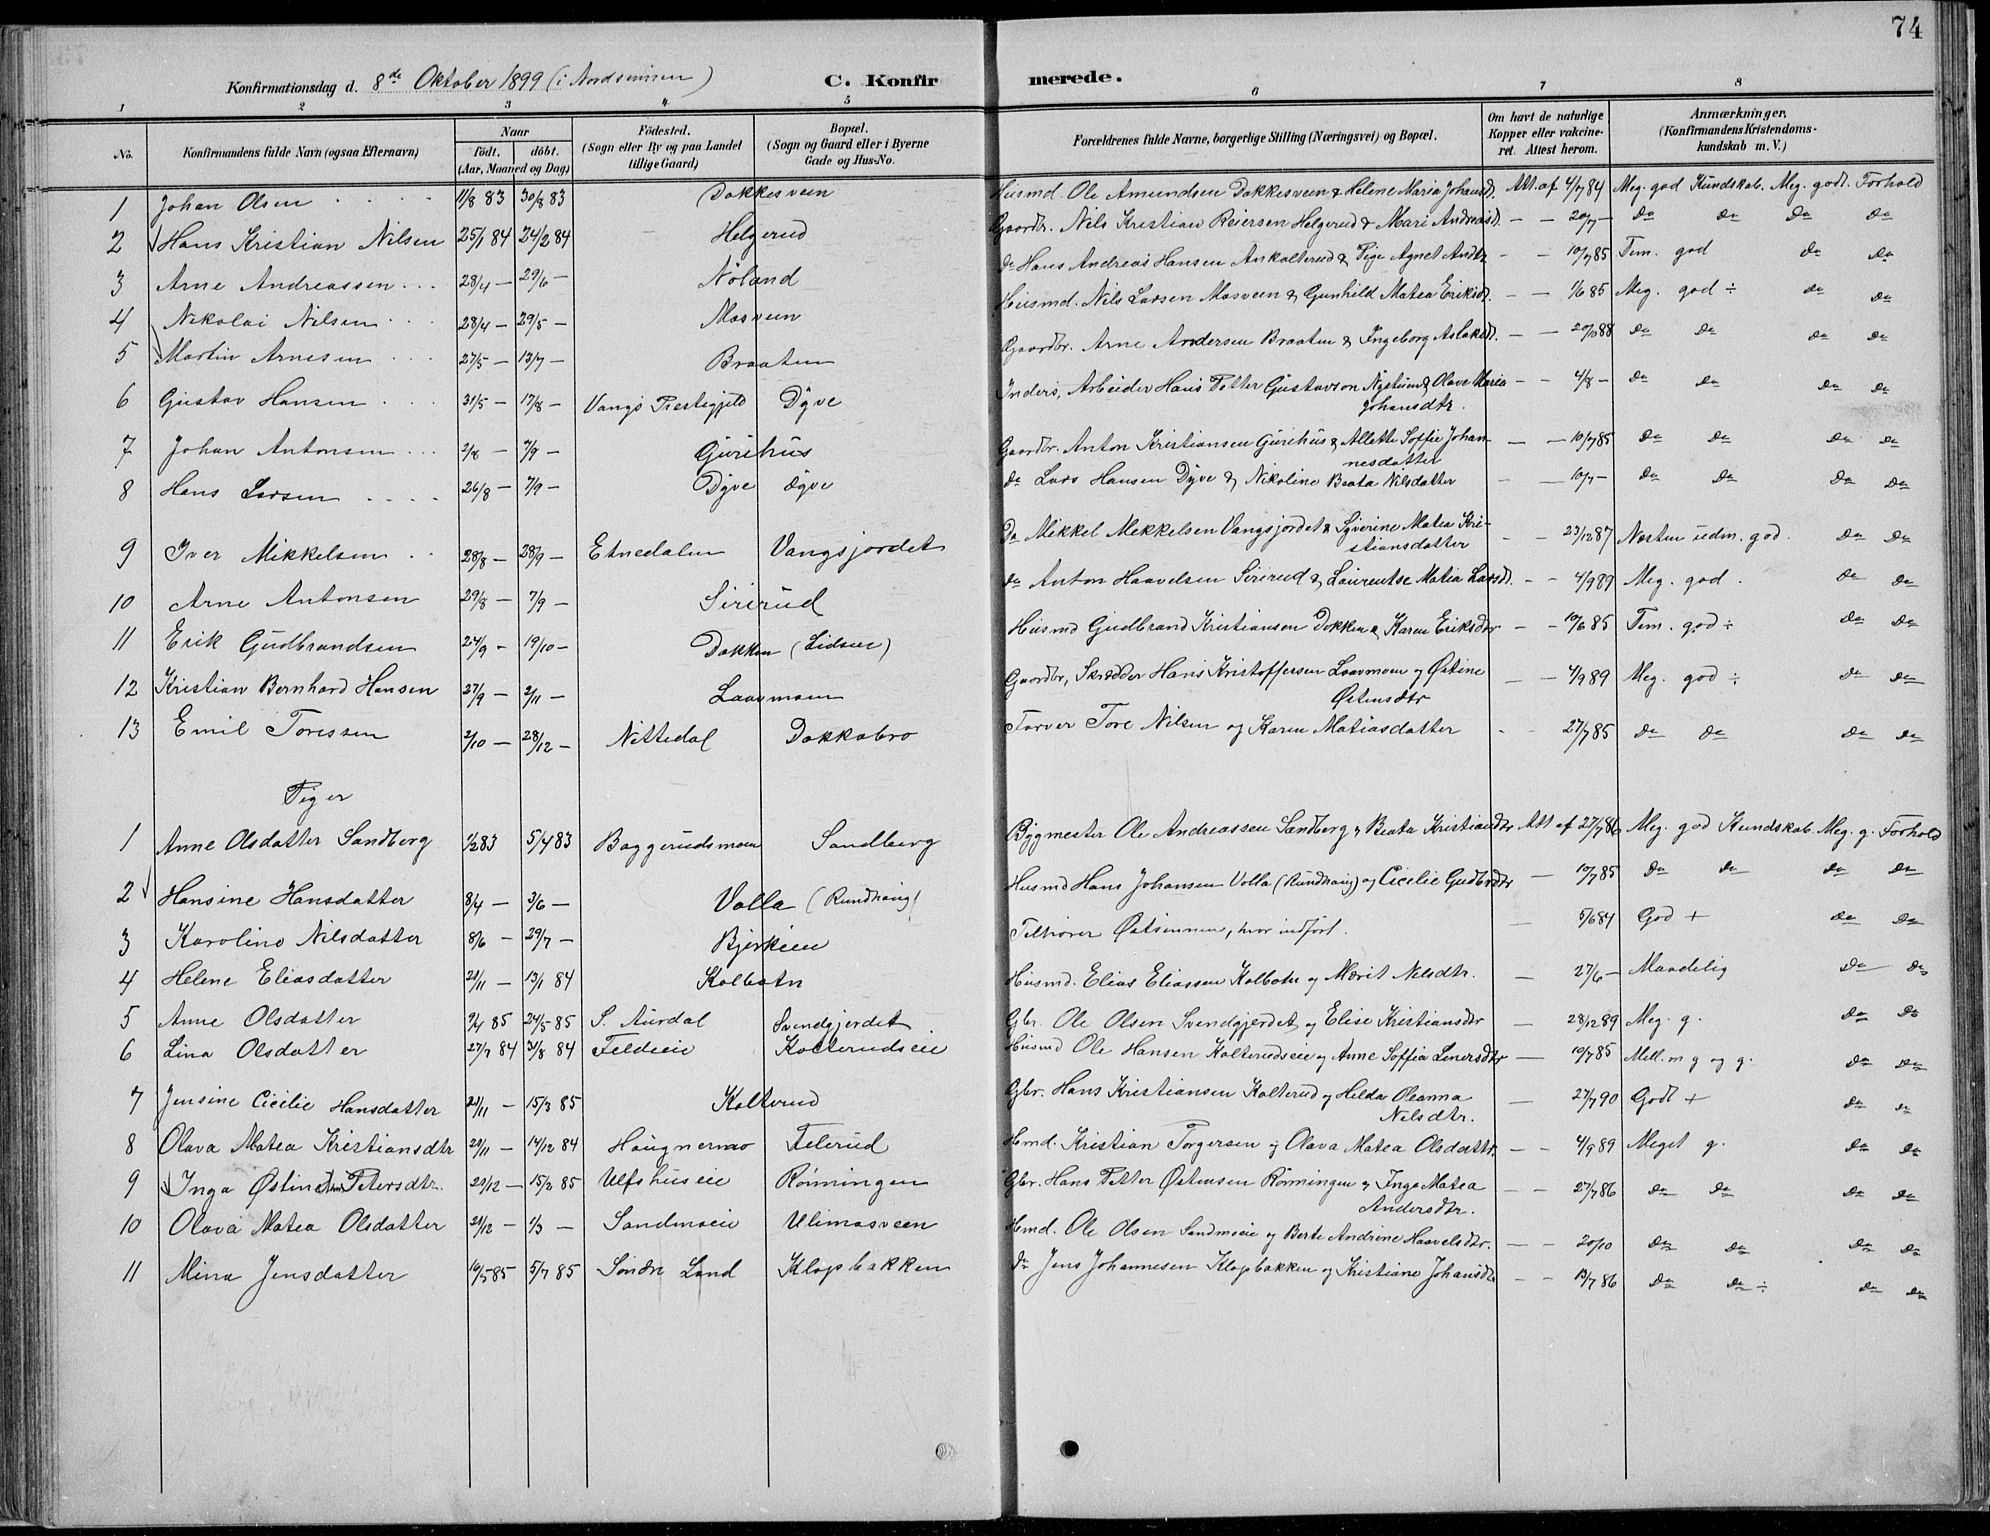 74
Konfirmationsdag d. 8de Oktober 1899 (i Nordsinnen) C. Konfirmerede.
1 2 3 4 5 6 7 8
No. Konfirmandens fulde Navn (ogsaa Efternavn) Naar født. døbt. (Aar, Maaned og Dag) Födested. (Sogn eller By og paa Landet tillige Gaard) Bopæl. (Sogn og Gaard eller i Byerne Gade og Hus-No. Forældrenes fulde Navne, borgerlige Stilling (Næringsvei) og Bopæl. Om havt de naturlige Kopper eller vakcineret. Attest herom. Anmærkninger. (Konfirmandens Kristendomskundskab m. V.)
1 Johan Olsen 11/8 83 30/8 83 Dokkesveen Husmd. Ole Amundsen Dokkesveen & Helene Maria Johansdt. Att. af 4/7 84 Meg. god Kundskab. Meg. godt. Forhold
2 Hans Kristian Nilsen 25/1 84 24/2 84 Helgerud Gaardbr. Nils Kristian Reiersen Helgerud & Mari Andreasdt. — — 20/7 — do do do do
3 Arne Andreassen 28/4 — 29/6 — Nöland do Hans Andreas Hansen Ankolterud & Pige Agnet Andtr. - — 10/7 85 Tem. god do do
4 Nikolai Nilsen 28/4 — 29/5 — Mosveen Husmd. Nils Larsen Mosveen & Gunhild Matea Eriksdt. — — 1/6 85 Meg. god ÷ do do
5 Martin Arnesen 27/5 — 13/7 — Braaten Gaardbr. Arne Andersen Braaten & Ingeborg Aslaksdt. — — 20/10 88 do do do do
6 Gustav Hansen 31/5 — 17/8 — Vangs Prestegjeld Dyve Inders, Arbeider Hans Petter Gustavson Nystuen & Olava Maria Johansdtr. — — 4/8 — do do do do
7 Johan Antonsen 2/8 — 7/9 — Gurihus Gaardbr. Anton Kristiansen Gurihus & Allette Soffie Johannesdatter — — 10/7 85 do do do do
8 Hans Larsen 26/8 — 7/9 — Dyve Dyve do Lars Hansen Dyve & Nikoline Beata Nilsdatter - — 10/7 — do do do do
9 Iver Mikkelsen 28/8 — 28/9 — Etnedalen Vangsjordet Do Mikkel Mekkelsen Vangsjordet & Syverine Matea Kristiansdatter - — 23/12 87 Næsten udm. god. do do
10 Arne Antonsen 29/8 — 7/9 — Sirirud do Anton Haavelsen Sirirud & Laurentse Matia Larsdt. - — 4/9 89 Meg. god. do do
11 Erik Gudbrandsen 24/9 — 19/10 — Dokken (Lidseie) Husmd Gudbrand Kristiansen Dokken & Karen Eriksdtr — — 10/6 85 Tem. god ÷ do do
12 Kristian Bernhard Hansen 27/9 — 2/11 — Laavmoen Gaardbr, Skrædder Hans Kristoffersen Laavmoen og Østine Østensdtr — — 4/9 89 Meg. god ÷ do do
13 Emil Toressen 2/10 — 28/12 — Nittedal Dokkabro Farver Tore Nilsen og Karen Matiasdatter - — 27/7 85 do do do do
Piger
1 Anne Olsdatter Sandberg 1/2 83 5/4 83 Baggerudsmoen Sandberg Bygmester Ole Andreassen Sandberg og Beata Kristiansdtr Att af 27/7 86 Meg. god Kundskab. Meg. g. Forhold
2 Hansine Hansdatter 8/4 — 3/6 — Volla (Rundhaug) Husmd Hans Johansen Volla (Rundhaug) og Cicilie Gudbrdtr — 10/7 85 do do do do
3 Karoline Nilsdatter 8/6 — 29/7 — Bjerkeie Tilhører Østsinnen, hvor indført. — 5/6 84 God + do do
4 Helene Eliasdatter 21/11 — 13/1 84 Kolbotn Husmd. Elias Eliassen Kolbotn og Marit Nilsdtr. — 27/6 — Maadelig do do
5 Anne Olsdatter 9/4 85 24/5 85 S. Aurdal Svendgjerdet Gbr. Ole Olsen Svendgjerdet og Elise Kristiansdtr — 28/12 89 Meg. g. do do
6 Lina Olsdatter 27/7 84 31/8 84 Feldeie Kolterudseie Husmd Ole Hansen Kolterudseie og Anne Soffia Einersdtr — 10/7 85 Mell. m g og g. do do
7 Jensine Cicilie Hansdatter 21/11 — 15/3 85 Kolterud Gbr. Hans Kristiansen Kolterud og Hilda Oleanna Nelsdtr. — 27/7 90 Godt + do do
8 Olava Matea Kristiansdtr 29/11 — 14/12 84 Haugnermo Felerud Hmd. Kristian Torgersen og Olava Matea Olsdattr. — — 4/9 89 Meget g. do do
9 Inga Østine Petersdtr. 20/12 — 15/2 85 Ulfshuseie Rønningen Gbr. Hans Petter Østensen Rønningen og Inge Matea Andersdtr. — — 27/7 86 do do do do
10 Olava Matea Olsdatter 21/12 — 1/3 — Sandmoeie Ulimosveen Hmd. Ole Olsen Sandmoeie og Berte Andrine Haavelsdtr. — — 20/10 do do do do
11 Mina Jensdatter 16/5 85 5/7 85 Sondre Land Klopbakken do Jens Johannesen Klopbakken og Kristiane Johansdtr — — 13/7 86 do do ÷ do do